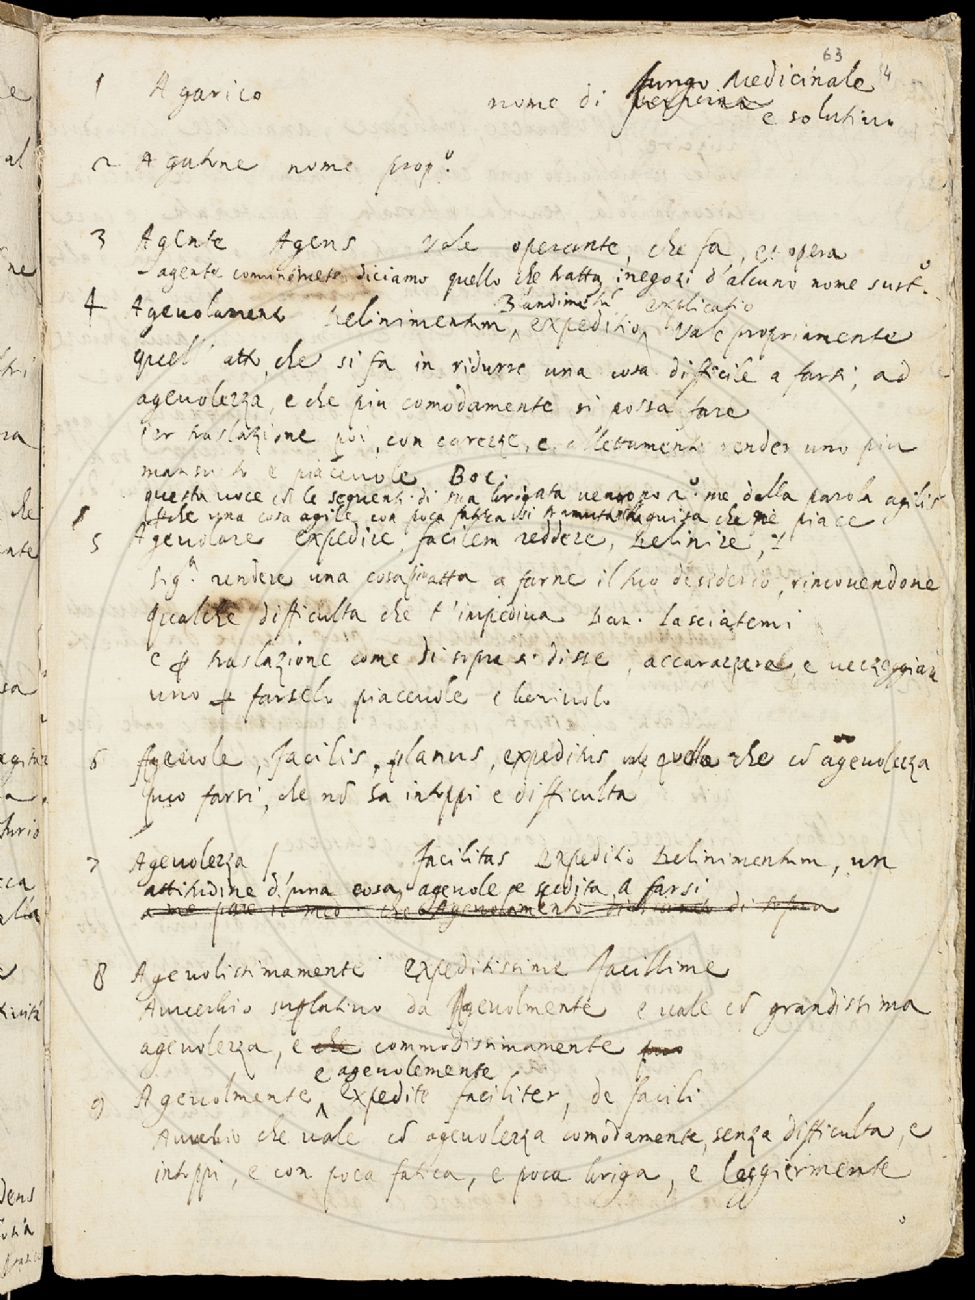 63
54
1 Agarico nome di fungo Medicinale
e solutivo
2 Agatone nome prop.o
3 Agente Agens Vale operante, che fa, et opera
agente diciamo quello che tratta i negozi d'alcuno nome sust.o
4 Agevolamento Delinimentum, expeditio, Vale propriamente
Blandimentū explicatio
quell' atto, che si fa in ridurre una cosa difficile a farsi, ad
agevolezza, e che piu comodamente si possa fare
Per traslazione poi, con carezze, e allettamenti render uno piu
mansueto e piacevole Boc.
questa voce cō le seguenti di sua brigata vengono a me dalla parola agilis
che una cosa agile con poca fatica si guisa che ne piace
5 Agevolare expedire, facilem reddere, Delinire,
Sig.a rendere una cosa atta a farne il suo desiderio, rimovendone
qualche difficulta che t'impediva Lasciatemi
e ꝑ traslazione come di sopra si disse, accarezzare, e vezzeggiare
uno ꝑ farselo piacevole e benivolo
6 Agevole, facilis, planus, expeditus, vale quello che cō agevolezza
puo farsi, che nō ha intoppi e difficulta
7 Agevolezza / facilitas Expeditio Delinimentum, un
attitudine d'una cosa agevole e spedita a farsi
a me pare il med.o che Agevolamento di sopra
8 Agevolissimamente expeditissime facillime
Avverbio suplativo da Agevolmente e vale cō grandissima
agevolezza, e che commodissimamente puo
e agevolemente
9 Agevolmente, expedite faciliter, de facili
Avverbio che vale cō agevolezza comodamente, senza difficulta, e
intoppi, e con poca fatica, e poca briga, e leggiermente